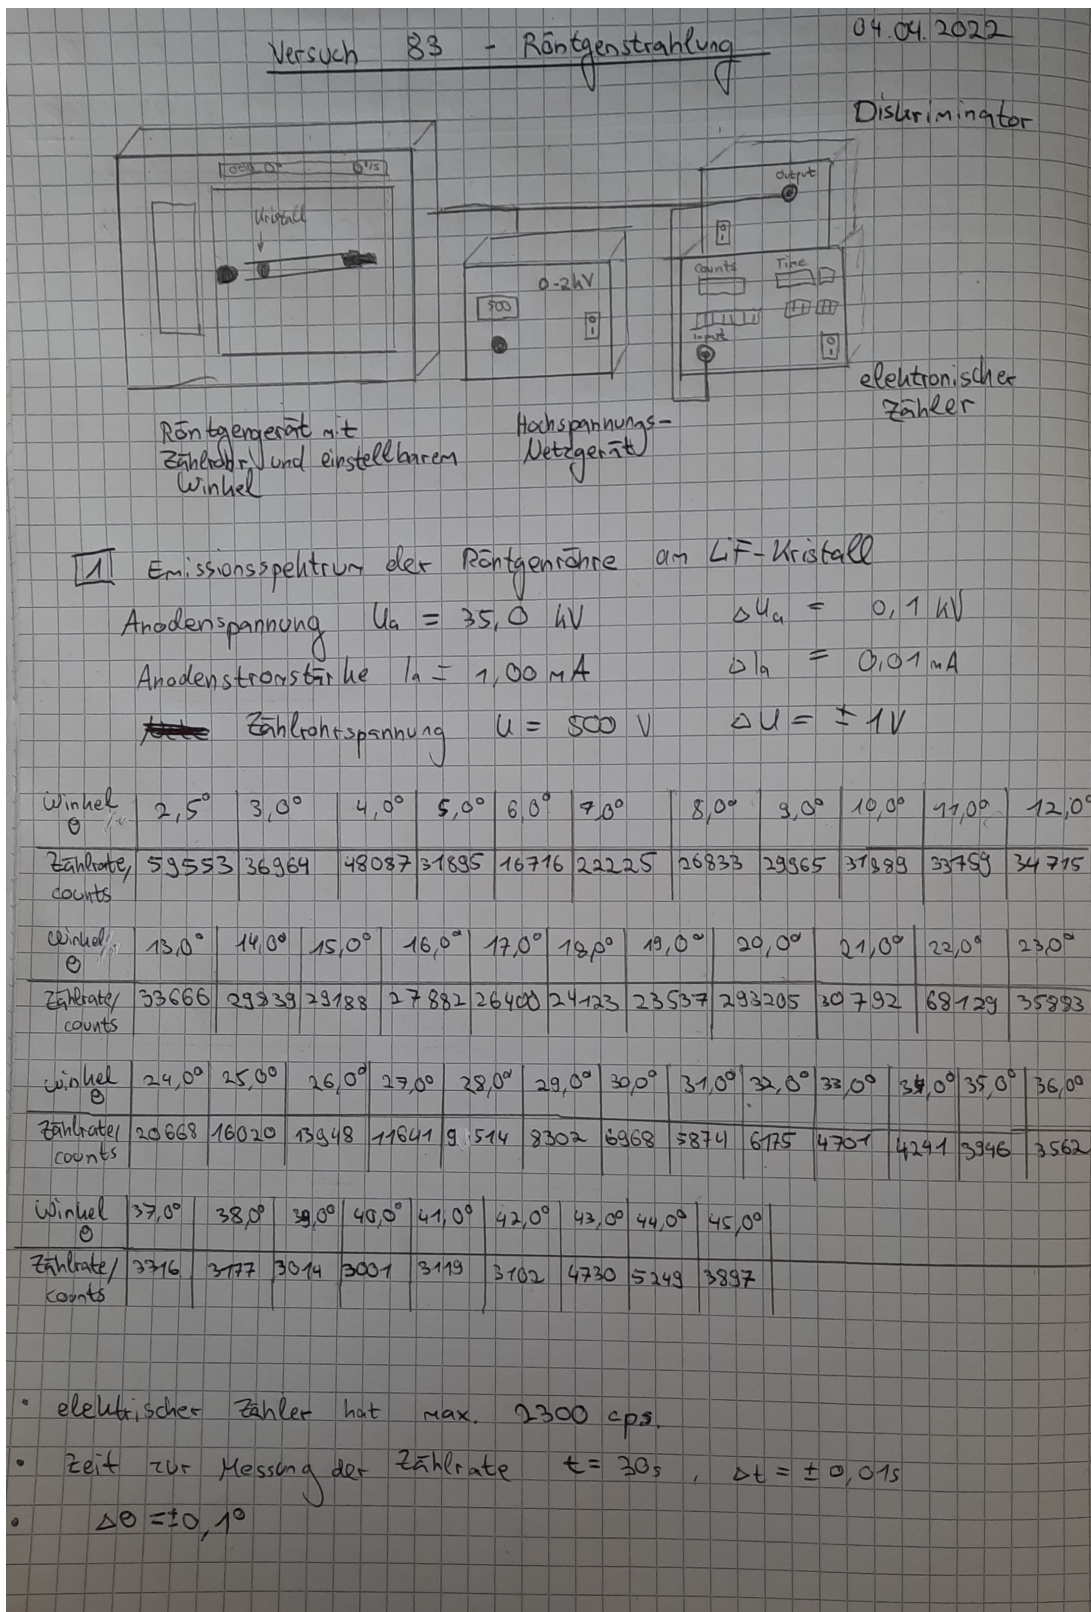 04.04.2022
Versuch 83 - Röntgenstrahlung
Diskriminator
Output
Kristall
0-2kV
500
Counts Time
Input
elektronischer
Zähler
Röntgengerät mit
Zählrohr und einstellbarem
Winkel
Hochspannungs-
Netzgerät
1 Emissionsspektrum der Röntgenröhre am LiF-Kristall
Anodenspannung Ua = 35,0 kV ΔUa = 0,1 kV
Anodenstromstärke Ia = 1,00 mA ΔIa = 0,01 mA
Zählrohrspannung U = 500 V ΔU = ± 1V
Winkel 2,5° 3,0° 4,0° 5,0° 6,0° 7,0° 8,0° 9,0° 10,0° 11,0° 12,0°
Θ
Zählrate/ 59553 36964 48087 31895 16716 22225 26833 29965 31889 33759 34715
counts
Winkel 13,0° 14,0° 15,0° 16,0° 17,0° 18,0° 19,0° 20,0° 21,0° 22,0° 23,0°
Θ
Zählrate/ 33666 29939 29188 27882 26400 24123 23537 293205 30792 68129 35883
counts
Winkel 24,0° 25,0° 26,0° 27,0° 28,0° 29,0° 30,0° 31,0° 32,0° 33,0° 34,0° 35,0° 36,0°
Θ
Zählrate/ 20668 16020 13948 11641 9514 8302 6968 5874 6175 4701 4241 3946 3562
counts
Winkel 37,0° 38,0° 39,0° 40,0° 41,0° 42,0° 43,0° 44,0° 45,0°
Θ
Zählrate/ 3316 3177 3014 3001 3119 3102 4730 5249 3897
counts
• elektrischer Zähler hat max. 2300 cps.
• Zeit zur Messung der Zählrate t = 30s , Δt = ± 0,01s
• ΔΘ = ±0,1°